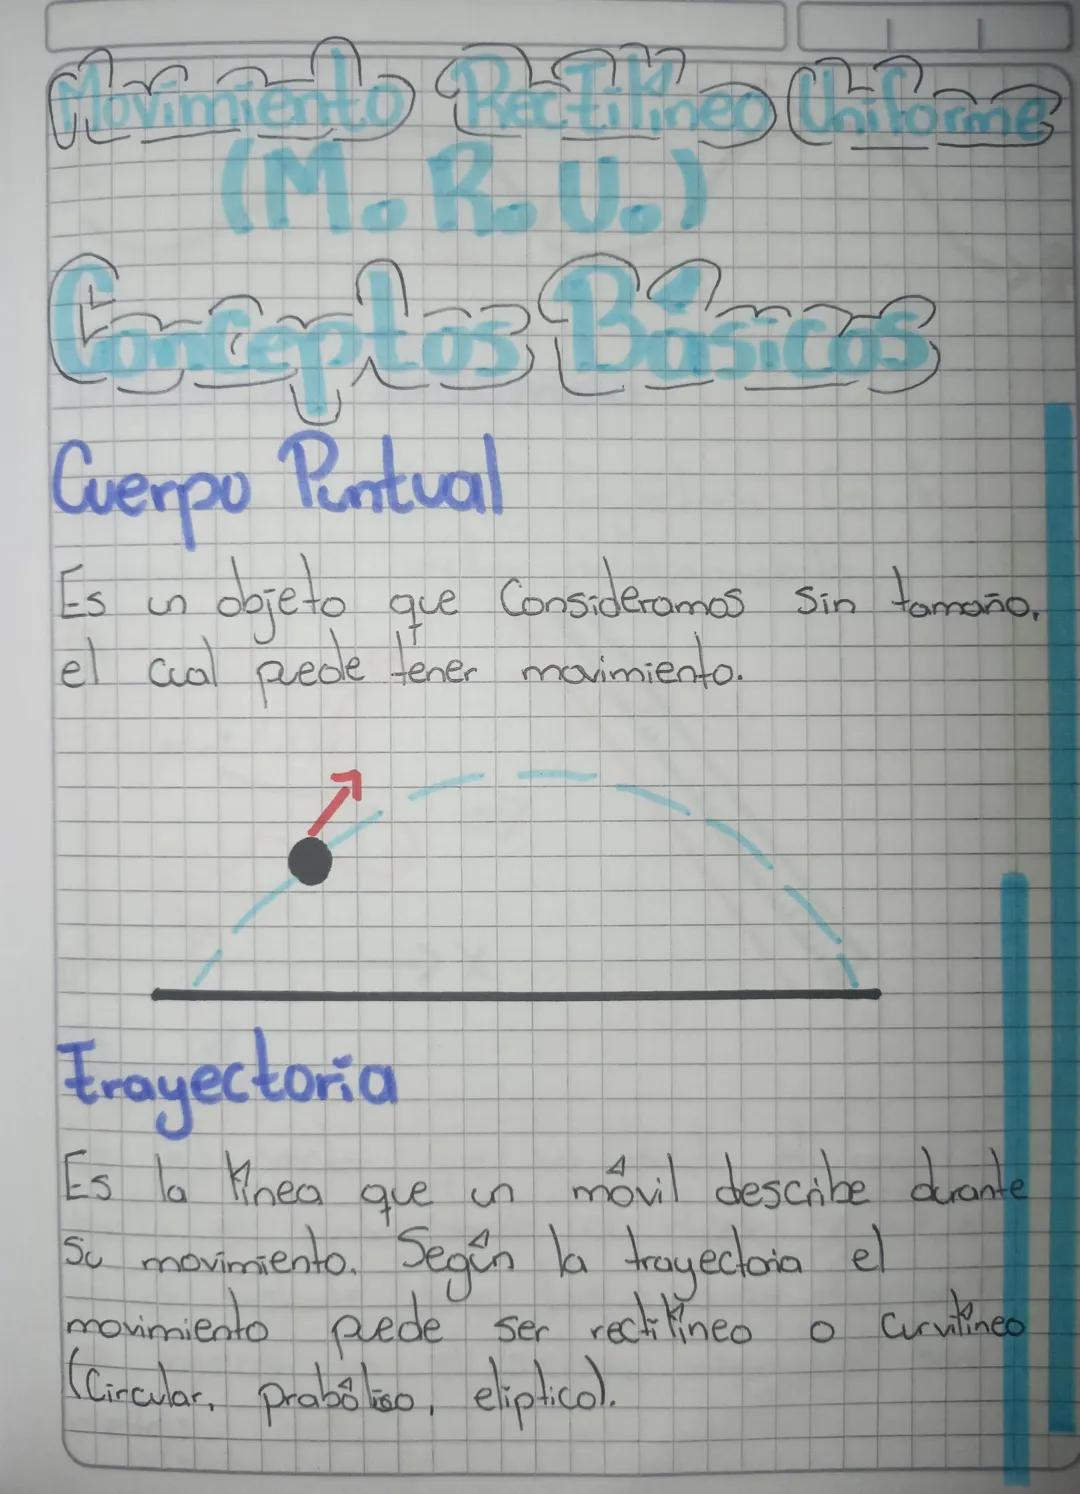 Movimiento Rectilíneo Uniforme
(M.R.U.)
Conceptos Básicos
Cuerpo Puntual
Es un objeto que Consideramos sin tamaño,
el cual puede tener movimiento.
Trayectoria
Es la línea que un móvil describe durante
su movimiento. Según la trayectoria el
movimiento puede ser rectilíneo o curvilíneo
(Circular, prabóliso, elíptico).